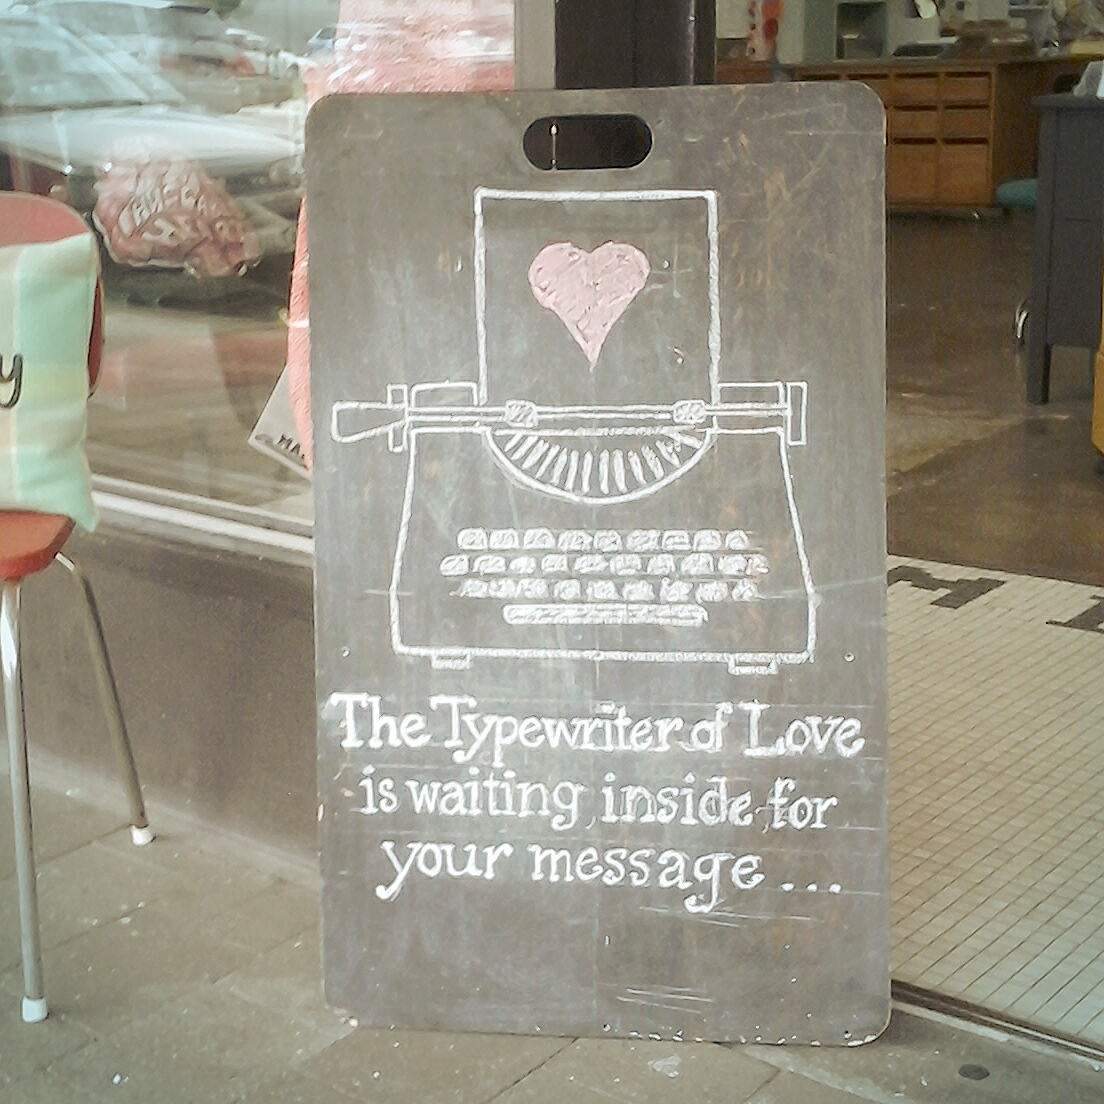 The Typewriter of Love
is waiting inside for
your message...
y
MA